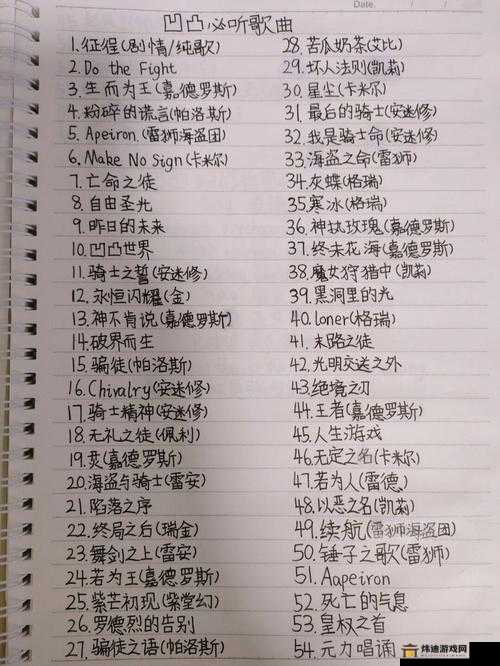 Date.
凹凸必听歌曲
1.征程(剧情/纯歌)
2.Do the Fight
3.生而为王(嘉德罗斯)
4.粉碎的谎言(帕洛斯)
5.Apeiron.(雷狮海盗团)
6.Make No Sign(卡米尔)
7.亡命之徒
8.自由圣光
9.昨日的未来
10.凹凸世界
11.骑士之誓(安迷修)
12.永恒闪耀(金)
13.神不肯说(嘉德罗斯)
14.破界而生
15.骗徒(帕洛斯)
16.Chivalry(安迷修)
17.骑士精神(安迷修)
18.无礼之徒(佩利)
19.烎(嘉德罗斯)
20.海盗与骑士(雷安)
21.陷落之序
22.终局之后(瑞金)
23.舞剑之上(雷安)
24.若为王(嘉德罗斯)
25.紫芒初现(紫堂幻)
26.罗德烈的告别
27.骗徒之语(帕洛斯)
28.苦瓜奶茶(艾比)
29.坏人法则(凯莉)
30.星尘(卡米尔)
31.最后的骑士(安迷修)
32.我是骑士命(安迷修)
33.海盗之命(雷狮)
34.灰蝶(格瑞)
35.寒冰(格瑞)
36.神址玫瑰(嘉德罗斯)
37.终末花海(嘉德罗斯)
38.魔女狩猎中(凯莉)
39.黑洞里的光
40.loner(格瑞)
41.末路之徒
42.光明交迭之外
43.绝境之刃
44.王者(嘉德罗斯)
45.人生游戏
46.无定之名(卡米尔)
47.若为人(雷德)
48.以恶之名(凯莉)
49.续航(雷狮海盗团)
50.锤子之歌(雷狮)
51.Aapeiron
52.死亡的气息
53.皇权之首
54.元力唱诵
炜迪游戏网